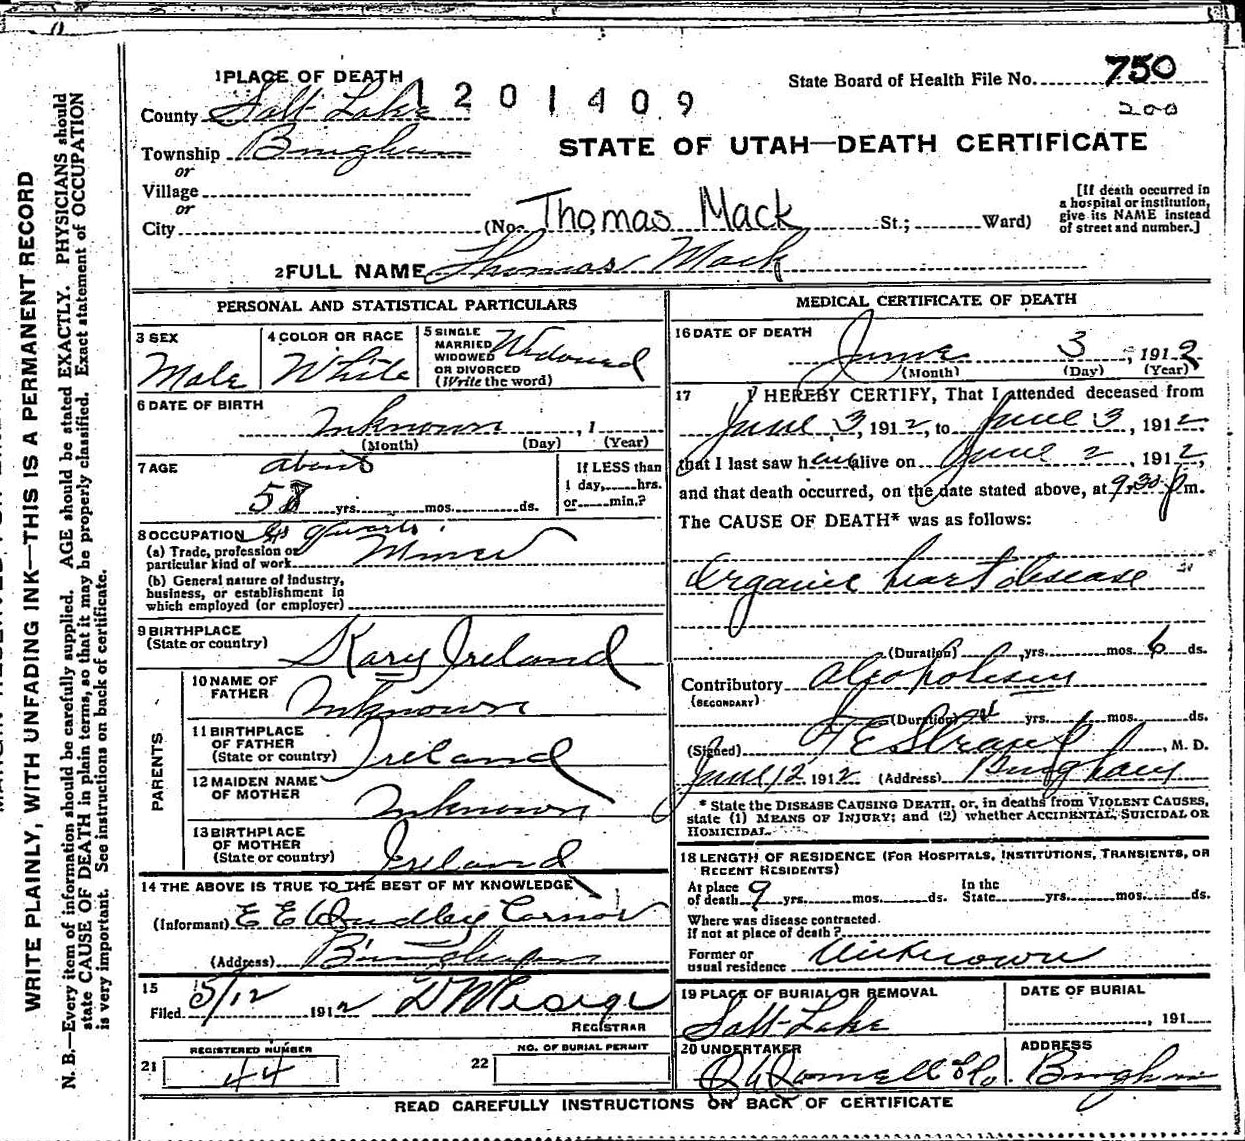 State Board of Health File No. 750
200
1 PLACE OF DEATH
1201409
County Salt Lake
STATE OF UTAH—DEATH CERTIFICATE
Township Bingham
or
Village
or
City
(No. Thomas Mack St.; Ward)
[If death occurred in
a hospital or institution,
give its NAME instead
of street and number.]
2 FULL NAME Thomas Mack
PERSONAL AND STATISTICAL PARTICULARS
3 SEX
Male
4 COLOR OR RACE
White
5 SINGLE
MARRIED
WIDOWED
OR DIVORCED
(Write the word)
Widowed
6 DATE OF BIRTH
Unknown , 1
(Month) (Day) (Year)
7 AGE
about
58 yrs. mos. ds.
If LESS than
1 day, hrs.
or min.?
8 OCCUPATION
(a) Trade, profession or
particular kind of work Miner
(b) General nature of industry,
business, or establishment in
which employed (or employer)
9 BIRTHPLACE
(State or country)
Kary Ireland
PARENTS
10 NAME OF
FATHER
Unknown
11 BIRTHPLACE
OF FATHER
(State or country)
Ireland
12 MAIDEN NAME
OF MOTHER
Unknown
13 BIRTHPLACE
OF MOTHER
(State or country)
Ireland
14 THE ABOVE IS TRUE TO THE BEST OF MY KNOWLEDGE
(Informant) E E Dudley
(Address) Bingham
15
Filed 5/12 1912
REGISTRAR
21
REGISTERED NUMBER
44
22
NO. OF BURIAL PERMIT
MEDICAL CERTIFICATE OF DEATH
16 DATE OF DEATH
June 3 , 1912
(Month) (Day) (Year)
17 I HEREBY CERTIFY, That I attended deceased from
June 3, 1912, to June 3, 1912
that I last saw h alive on June 2, 1912,
and that death occurred, on the date stated above, at 9.30 p m.
The CAUSE OF DEATH* was as follows:
Organic heart disease
(Duration) yrs. mos. 6 ds.
Contributory Alcoholism
(SECONDARY)
(Duration) yrs. mos. ds.
(Signed) , M. D.
June 12 1912 (Address) Bingham
* State the DISEASE CAUSING DEATH, or, in deaths from VIOLENT CAUSES,
state (1) MEANS OF INJURY; and (2) whether ACCIDENTAL, SUICIDAL OR
HOMICIDAL.
18 LENGTH OF RESIDENCE (FOR HOSPITALS, INSTITUTIONS, TRANSIENTS, OR
RECENT RESIDENTS)
At place
of death 9 yrs. mos. ds.
In the
State yrs. mos. ds.
Where was disease contracted.
If not at place of death?
Former or
usual residence Unknown
19 PLACE OF BURIAL OR REMOVAL
Salt Lake
DATE OF BURIAL
, 191
20 UNDERTAKER
ADDRESS
Bingham
READ CAREFULLY INSTRUCTIONS ON BACK OF CERTIFICATE
WRITE PLAINLY, WITH UNFADING INK—THIS IS A PERMANENT RECORD
N. B.—Every item of information should be carefully supplied. AGE should be stated EXACTLY. PHYSICIANS should
state CAUSE OF DEATH in plain terms, so that it may be properly classified. Exact statement of OCCUPATION
is very important. See instructions on back of certificate.